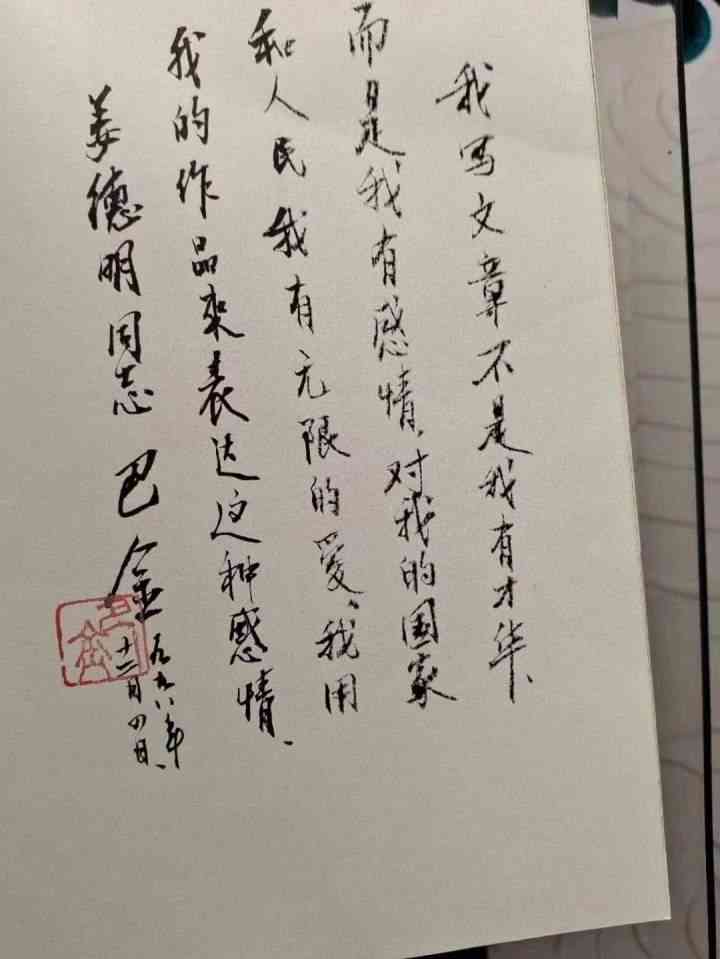 我写文章不是我有才华、
而是、我有感情、对我的国家
和人民我有无限的爱、我用
我的作品来表达这种感情、
姜德明同志 巴金
一九九八年
十二月四日、
巴金